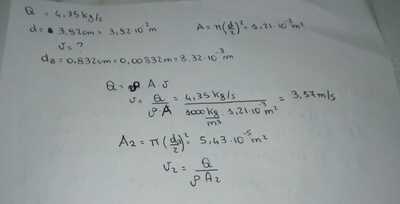 Q = 4,35 kg/s
d = 3,92cm = 3,92·10⁻²m A = π(d/2)² = 1,21·10⁻³m²
v = ?
d₀ = 0,832cm = 0,00832m = 8.32·10⁻³m
Q = ρ A v
v = Q/ρA = 4,35 kg/s / 1000 kg/m³ 1,21·10⁻³m² = 3,57m/s
A₂ = π(d₀/2)² = 5,43·10⁻⁵m²
v₂ = Q/ρA₂